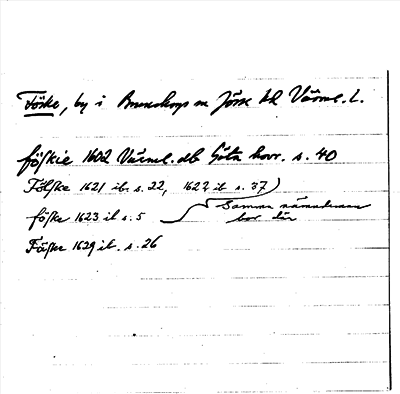 Föske, by i Brunskogs sn Jösse hd Värml. l.
föſkie 1602 Värml. db Göta hovr. s. 40
Fölſke 1621 ib. s. 22, 1622 ib s. 37)
föſke 1623 ib s. 5
Samma nämndeman
bor där
Föſke 1629 ib. s. 26